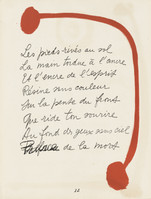 Les pieds rivés au sol
La main à l'ancre
Et l'encre de l'esprit
Résine sans couleur
Sur la pente du front
Que ride ton sourire
Au fond des yeux sans ciel
de la mort